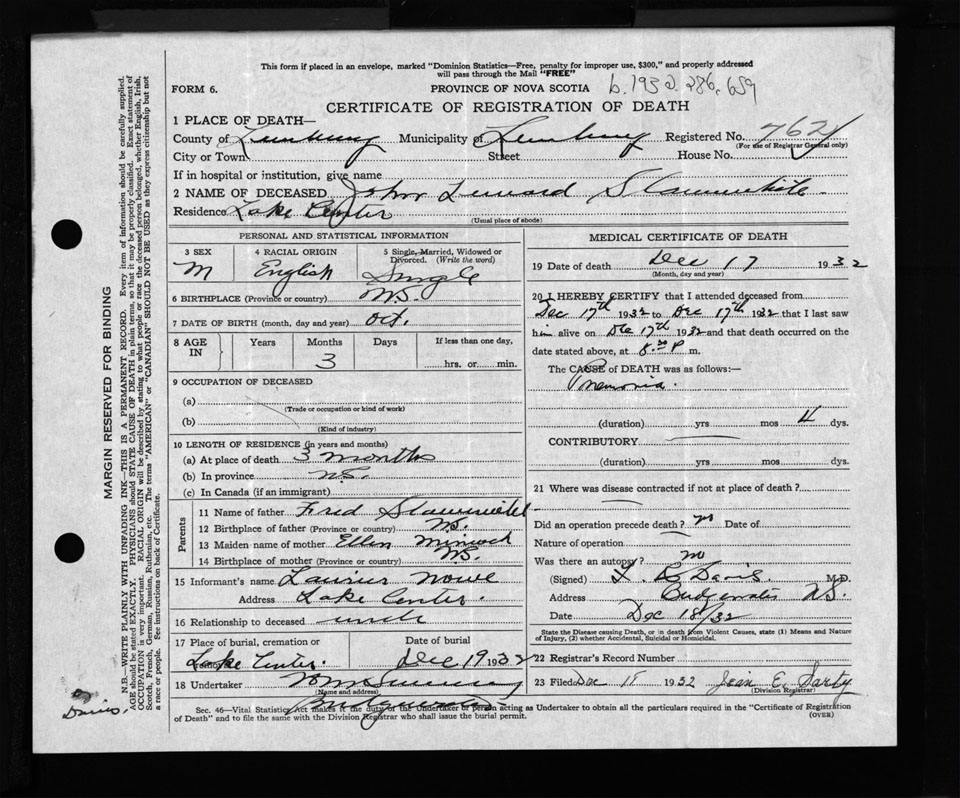 This form if placed in an envelope, marked "Dominion Statistics—Free, penalty for improper use, $300," and properly addressed
will pass through the Mail "FREE"
FORM 6.
PROVINCE OF NOVA SCOTIA
b. 1932. 286, 659
CERTIFICATE OF REGISTRATION OF DEATH
1 PLACE OF DEATH—
County of Lunenburg Municipality of Lunenburg Registered No. 762
(For use of Registrar General only)
City or Town Street House No.
If in hospital or institution, give name
2 NAME OF DECEASED John Lenard Slauenwhite
Residence Lake Center
(Usual place of abode)
PERSONAL AND STATISTICAL INFORMATION
3 SEX 4 RACIAL ORIGIN 5 Single, Married, Widowed or Divorced. (Write the word)
M English Single
6 BIRTHPLACE (Province or country) N.S.
7 DATE OF BIRTH (month, day and year) Oct.
8 AGE IN Years Months Days If less than one day,
3 hrs. or min.
9 OCCUPATION OF DECEASED
(a)
(Trade or occupation or kind of work)
(b)
(Kind of industry)
10 LENGTH OF RESIDENCE (in years and months)
(a) At place of death 3 months
(b) In province N.S.
(c) In Canada (if an immigrant)
Parents
11 Name of father Fred Slauenwhite
12 Birthplace of father (Province or country) N.S.
13 Maiden name of mother Ellen
14 Birthplace of mother (Province or country) N.S.
15 Informant's name Laurier Nowe
Address Lake Center.
16 Relationship to deceased uncle
17 Place of burial, cremation or removal Date of burial
Lake Center. Dec 19 1932
18 Undertaker
(Name and address)
MEDICAL CERTIFICATE OF DEATH
19 Date of death Dec 17 1932
(Month, day and year)
20 I HEREBY CERTIFY that I attended deceased from
Dec 17th 1932 to Dec 17th 1932 that I last saw
him alive on Dec 17th 1932 and that death occurred on the
date stated above, at 8.30 P m.
The CAUSE of DEATH was as follows:—
Pnemonia.
(duration) yrs mos 4 dys.
CONTRIBUTORY
(duration) yrs mos dys.
21 Where was disease contracted if not at place of death?
Did an operation precede death? no Date of
Nature of operation
Was there an autopsy? no
(Signed) Davis. M.D.
Address Bridgewater N.S.
Date Dec 18/32
State the Disease causing Death, or in death from Violent Causes, state (1) Means and Nature
of Injury, (2) whether Accidental, Suicidal or Homicidal.
22 Registrar's Record Number
23 Filed Dec 18 1932 Jean E. Sarty
(Division Registrar)
Sec. 46—Vital Statistics Act makes it the duty of the Undertaker or person acting as Undertaker to obtain all the particulars required in the "Certificate of Registration
of Death" and to file the same with the Division Registrar who shall issue the burial permit.
(OVER)
MARGIN RESERVED FOR BINDING
N.B.—WRITE PLAINLY WITH UNFADING INK—THIS IS A PERMANENT RECORD. Every item of information should be carefully supplied.
AGE should be stated EXACTLY. PHYSICIANS should STATE CAUSE OF DEATH in plain terms, so that it may be properly classified. Exact statement of
OCCUPATION is very important. RACIAL ORIGIN will be described by stating to what people or race the deceased person belonged, whether English, Irish,
Scotch, French, German, Russian, Ruthenian, etc. The terms "AMERICAN" or "CANADIAN" SHOULD NOT BE USED as they express citizenship but not
a race or people. See instructions on back of Certificate.
Davis.